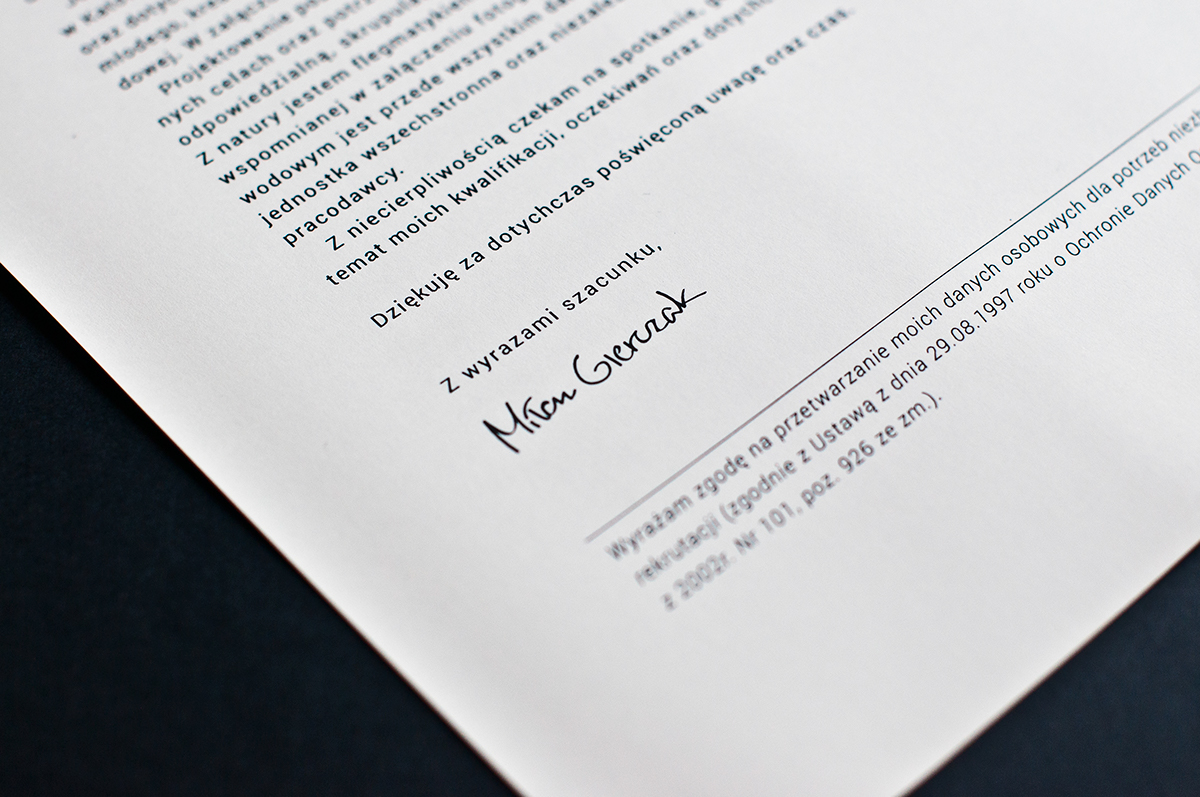 w
oraz
młodego,
dowej. W
Projektowanie
nych celach oraz
odpowiedzialną,
Z natury jestem flegmatykiem
wspomnianej w załączeniu
wodowym jest przede wszystkim
jednostka wszechstronna oraz
pracodawcy.
Z niecierpliwością czekam na spotkanie,
temat moich kwalifikacji, oczekiwań oraz
Dziękuję za dotychczas poświęconą uwagę oraz czas.
Z wyrazami szacunku,
Milan Gierczak
Wyrażam zgodę na przetwarzanie moich danych osobowych dla potrzeb
rekrutacji (zgodnie z Ustawą z dnia 29.08.1997 roku o Ochronie Danych
z 2002r. Nr 101, poz. 926 ze zm.).